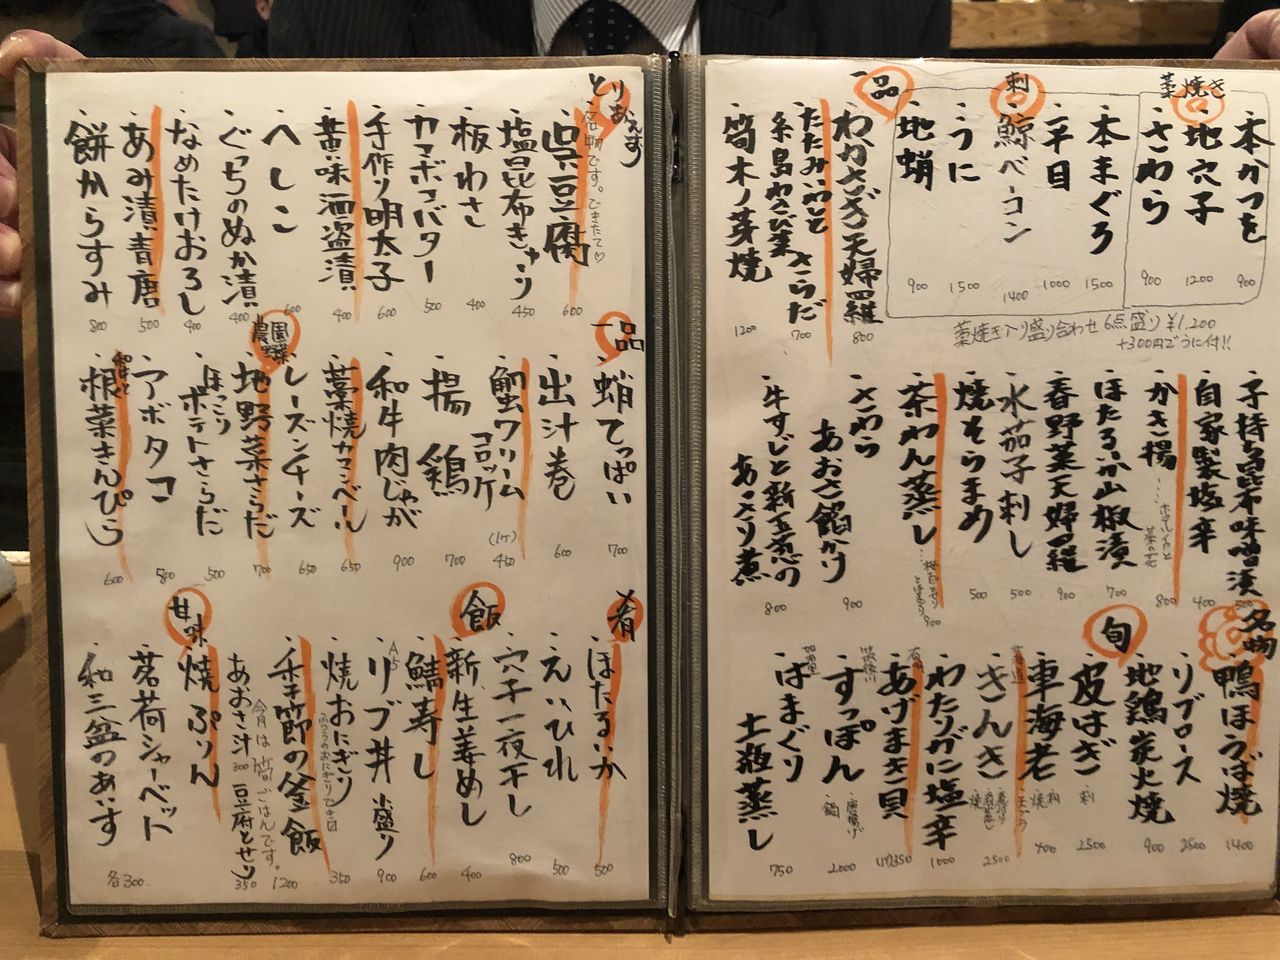 藁焼き
本かつを 900
地穴子 1200
さわら 900
刺
本まぐろ 1500
平目 1000
鯨ベーコン 1400
うに 1500
地蛸 900
藁焼き入り盛り合わせ 6点盛り ¥1,200
+300円でうに付!!
一品
わかさぎ天婦羅 800
たたみいわと
糸島わさび菜 さらだ 700
筍木ノ芽焼 1200
子持ち昆布味噌漬 500
自家製塩辛 400
かき揚 800
ほたるいか山椒漬 700
春野菜天婦羅 900
水茄子刺し 500
焼そらまめ 500
茶わん蒸し 900
さわら
あおさ餡かけ 900
牛すじと新玉葱の
あっさり煮 800
名物
鴨ほうば焼 1400
リブロース 2500
地鶏炭火焼 900
旬
皮はぎ 刺 2500
車海老 400
きんき 2500
わたりがに塩辛 1000
あげまき貝 (1ケ)350
すっぽん 唐揚げ 鍋 2000
はまぐり
土瓶蒸し 750
とりあえず
名物です。できたて♡
呉豆腐 600
塩昆布きゅうり 450
板わさ 400
カマボコバター 500
手作り明太子 600
黄味酒盗漬 400
へしこ 600
ぐっちのぬか漬 400
なめたけおろし 400
あみ漬青唐 500
餅からすみ 800
一品
蛸てっぱい 700
出汁巻 600
蟹クリーム
コロッケ (1ケ) 450
揚鶏 700
和牛肉じゃが 900
藁焼カマンベール 650
レーズンチーズ 650
農園野菜
地野菜さらだ 700
ほっこり
ポテトさらだ 500
アボタコ 500
根菜きんぴら 600
肴
ほたるいか 500
えいひれ 500
穴子一夜干し 800
飯
新生姜めし 400
鯖寿し 600
A5
リブ丼 小盛り 900
焼おにぎり 350
季節の釜飯 1200
今月は筍ごはんです。
あおさ汁 300 豆腐とせり 350
甘味
焼ぷりん
茗荷シャーベット
和三盆のあいす
各300.